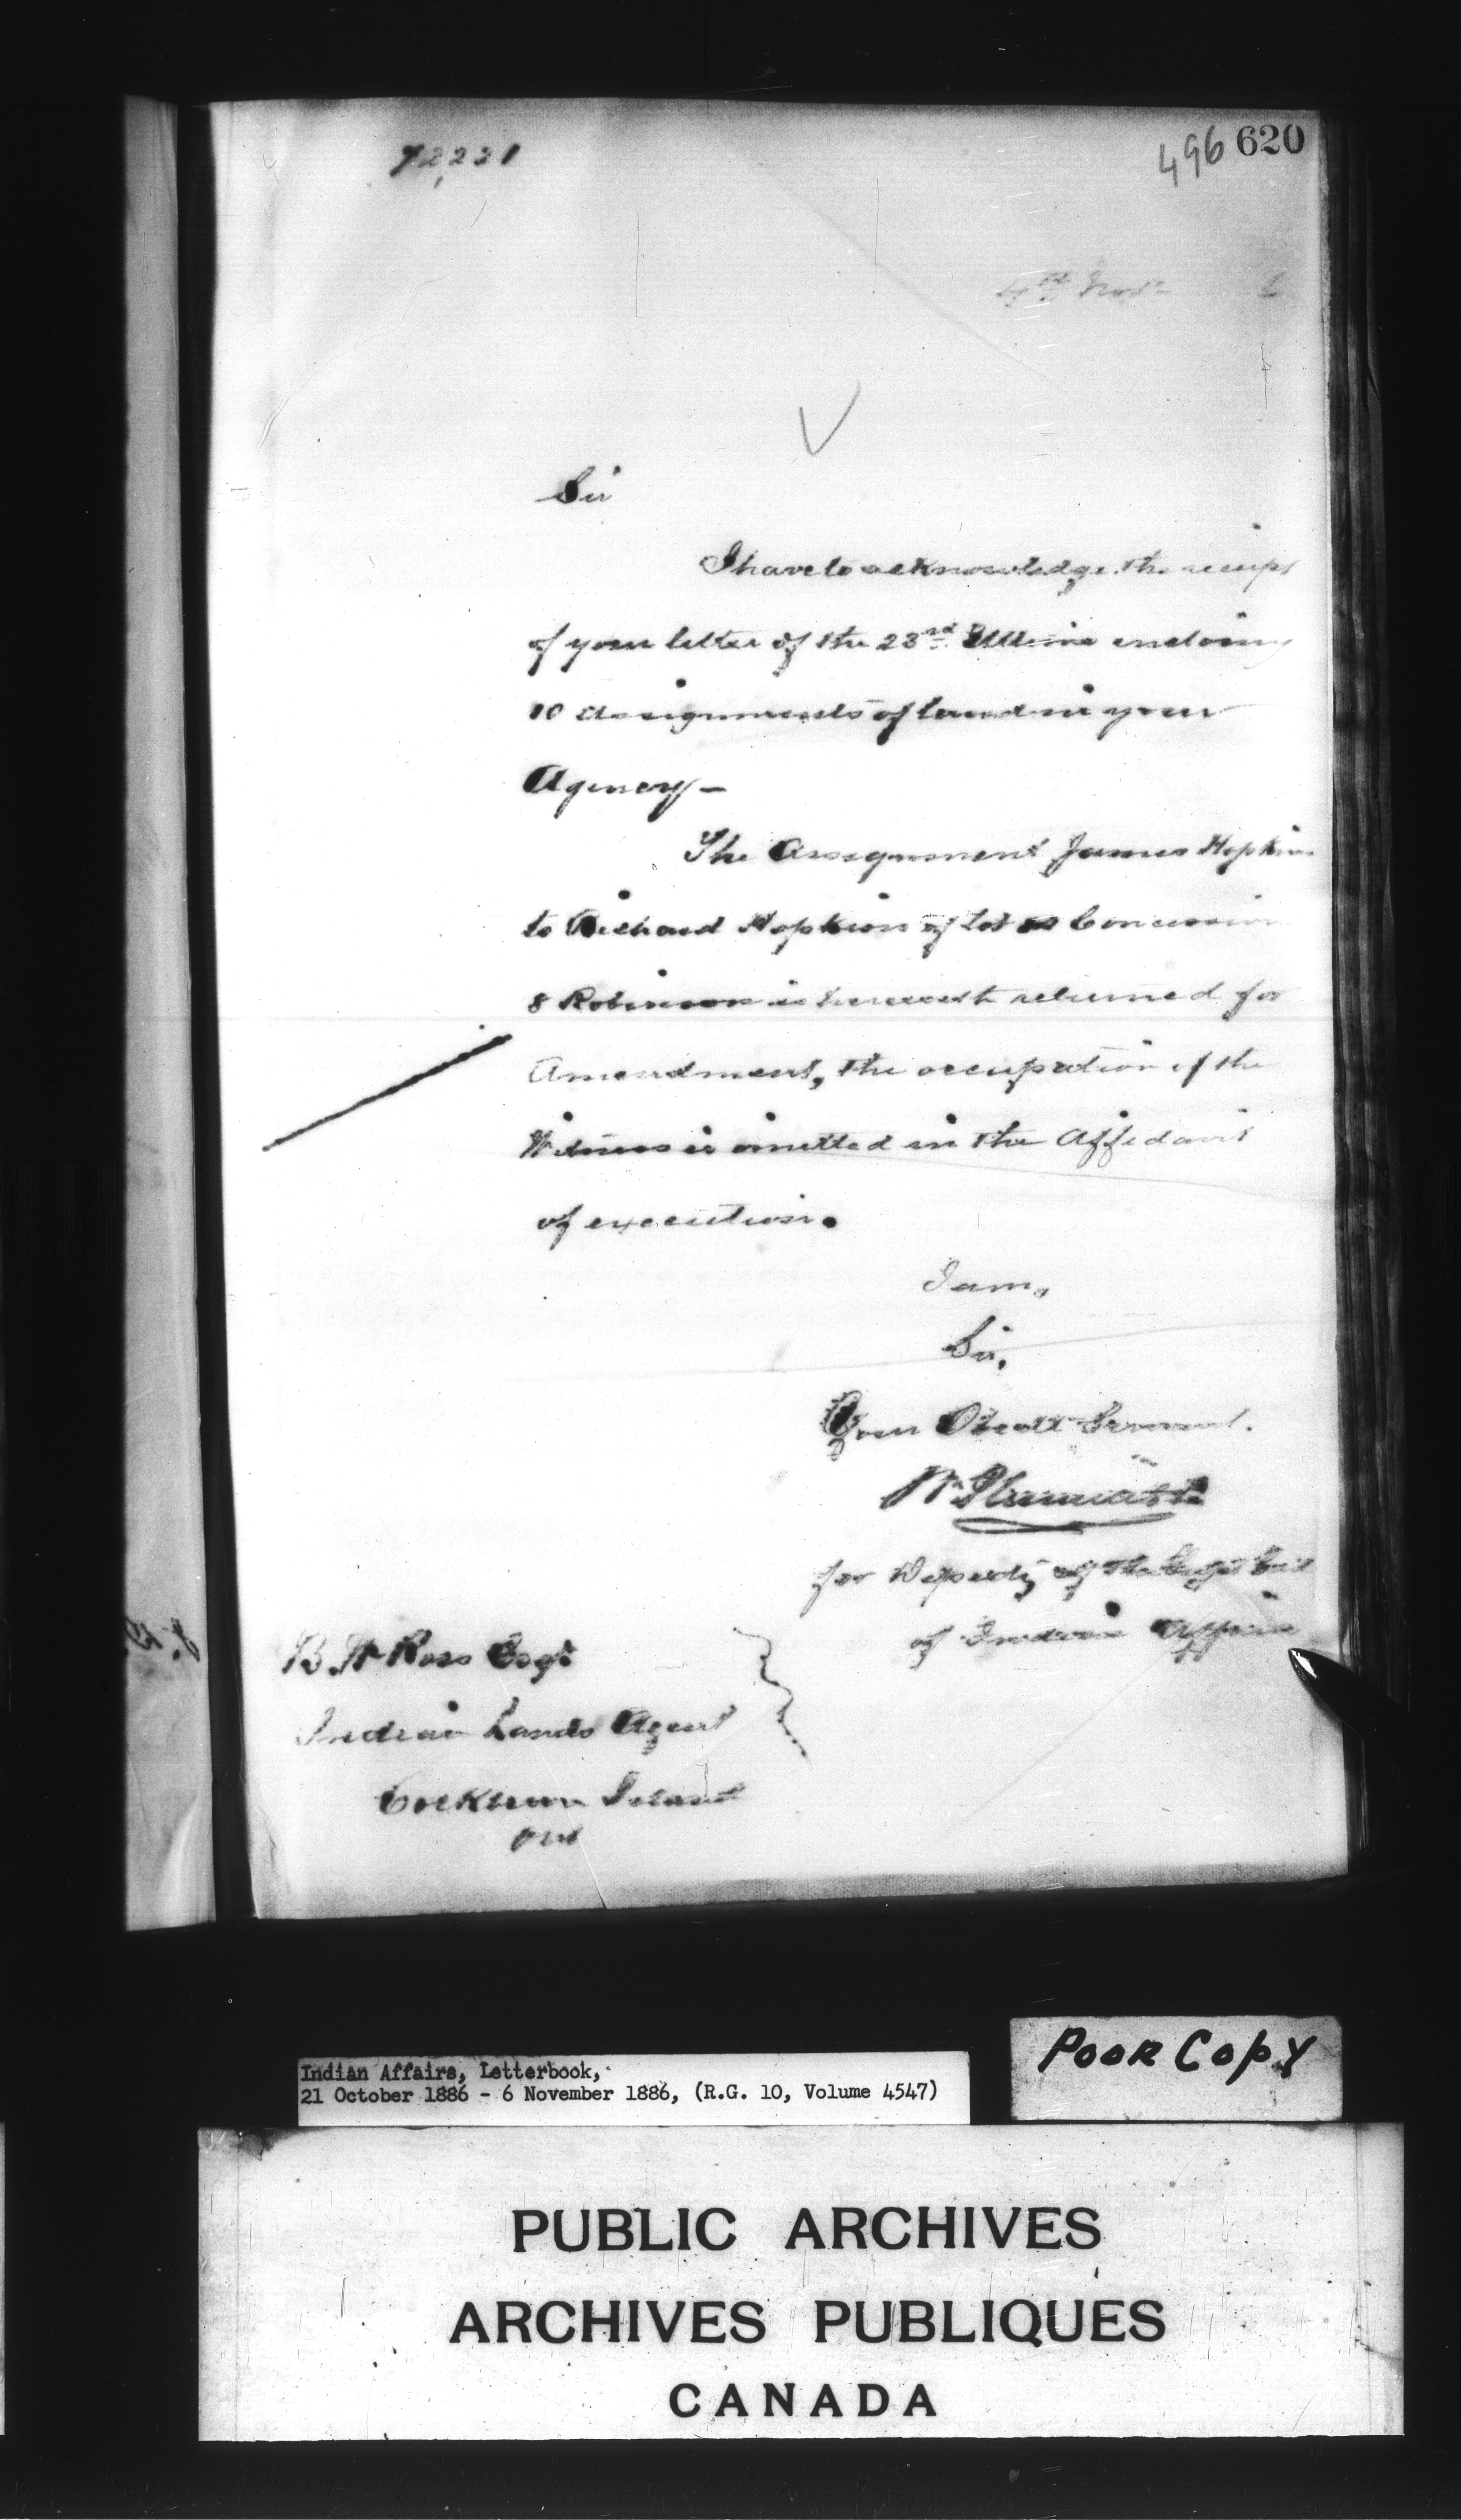 72,221
496 620
4th Novr 6
Sir
I have to acknowledge the receipt
of your letter of the 23rd Ultimo enclosing
10 assignments of land in your
Agency —
The Assignment James Hopkins
to Richard Hopkins of Lot Concession
8 Robinson is herewith returned for
Amendment, the occupation of the
Witness is omitted in the Affidavit
of execution.
I am,
Sir,
Your Obedt Servant.
for Deputy of the Supt Genl
of Indian Affairs
B W Ross Esqr
Indian Lands Agent
Cockburn Island
Ont
Indian Affairs, Letterbook,
21 October 1886 - 6 November 1886, (R.G. 10, Volume 4547)
Poor Copy
PUBLIC ARCHIVES
ARCHIVES PUBLIQUES
CANADA